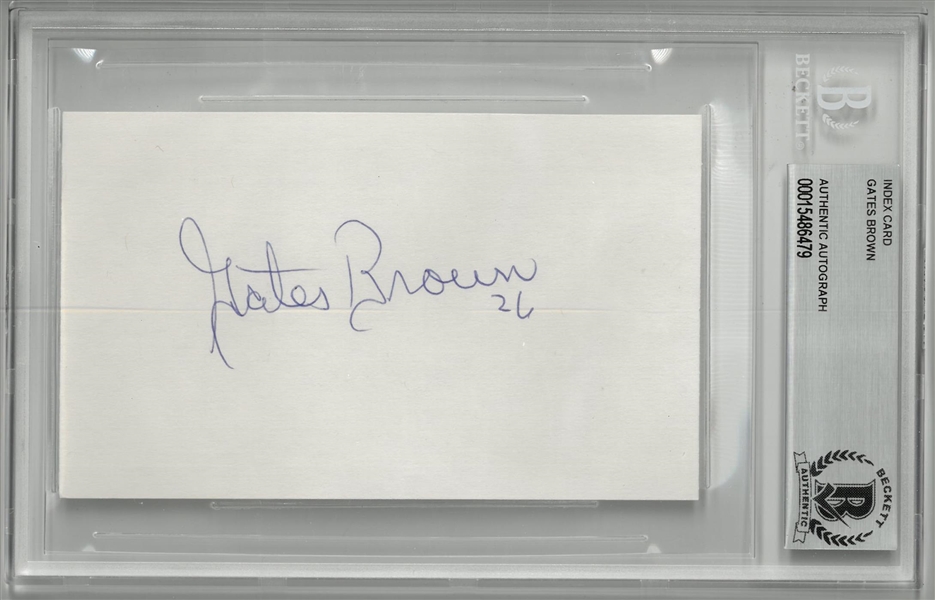 Gates Brown
26
BECKETT
B
INDEX CARD
GATES BROWN
AUTHENTIC AUTOGRAPH
00015486479
BECKETT
B
AUTHENTIC